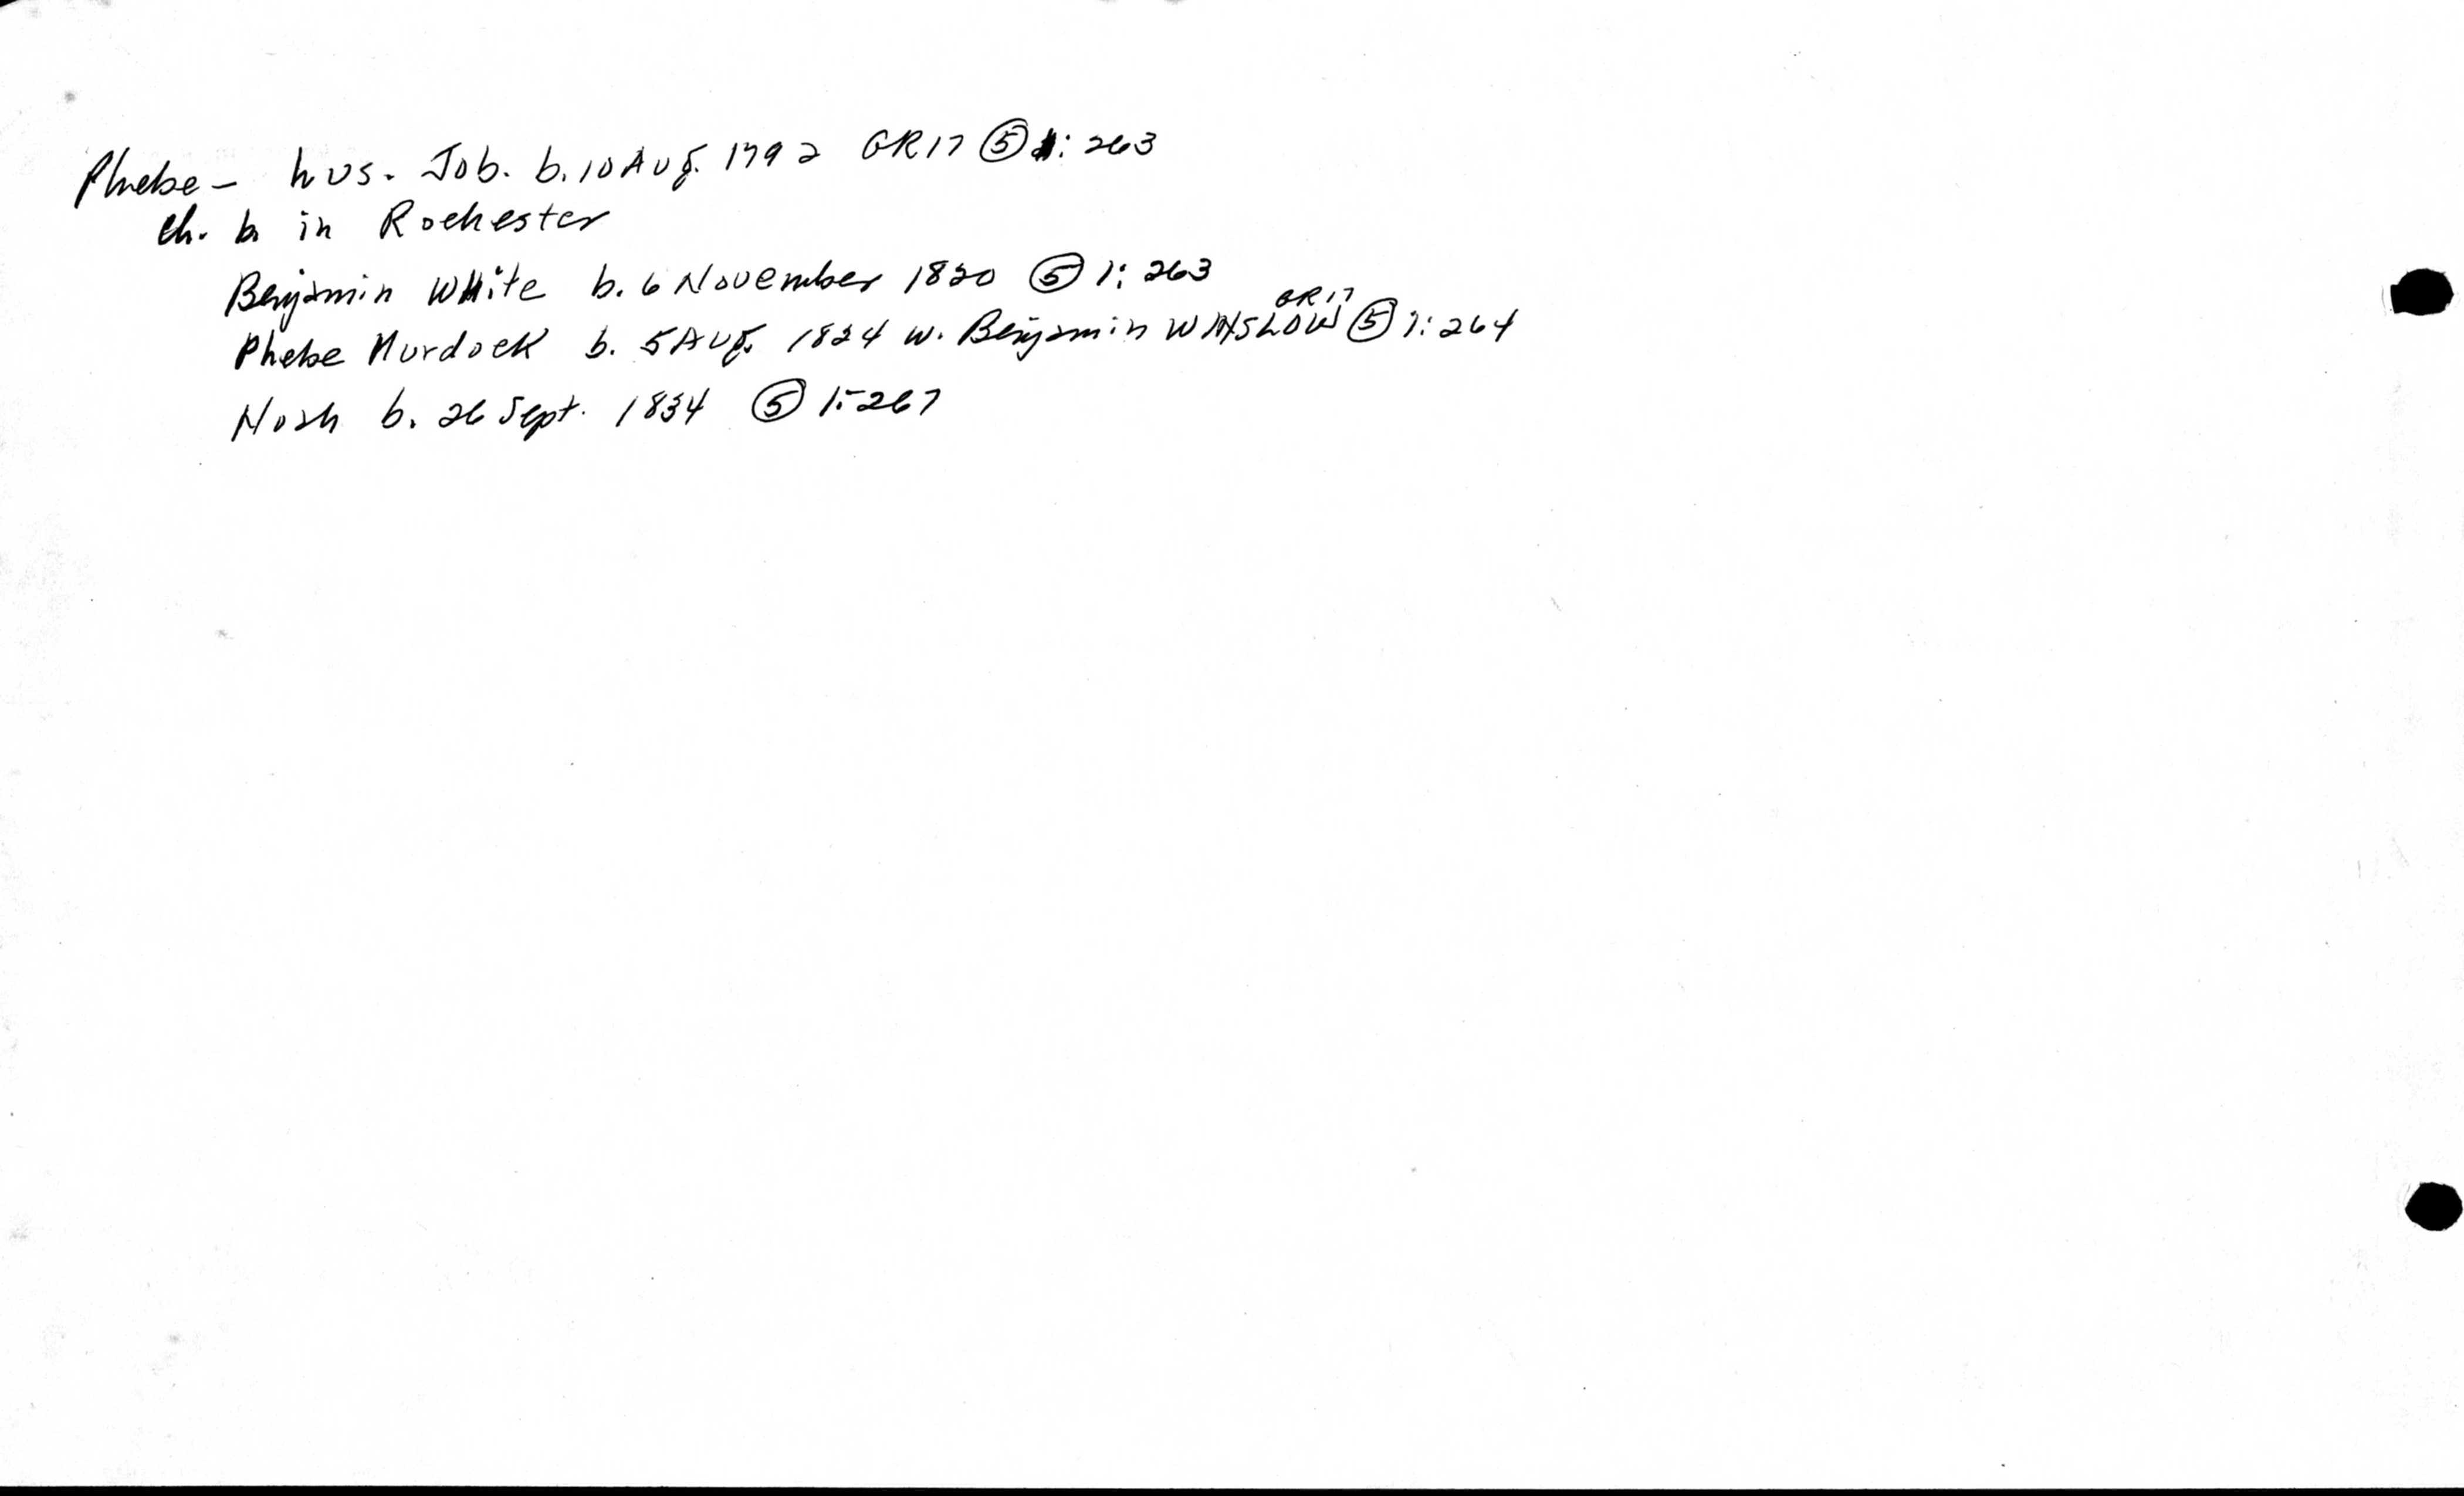 Phebe - hus. Job. b. 10 Aug. 1792 GR17 ⑤ 1: 263
Ch. b. in Rochester
Benjamin White b. 6 November 1820 ⑤ 1: 263
Phebe Murdock b. 5 Aug. 1824 w. Benjamin WINSLOW GR17 ⑤ 1: 264
Noah b. 26 Sept. 1834 ⑤ 1:267